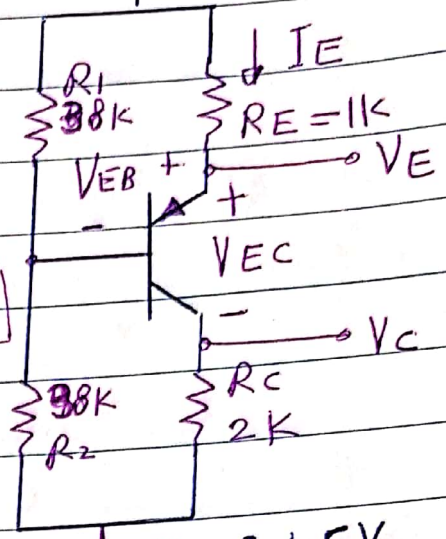 IE
R1
38K
RE=1K
VEB + VE
+
-
VEC
-
VC
38K
RC
R2
2K